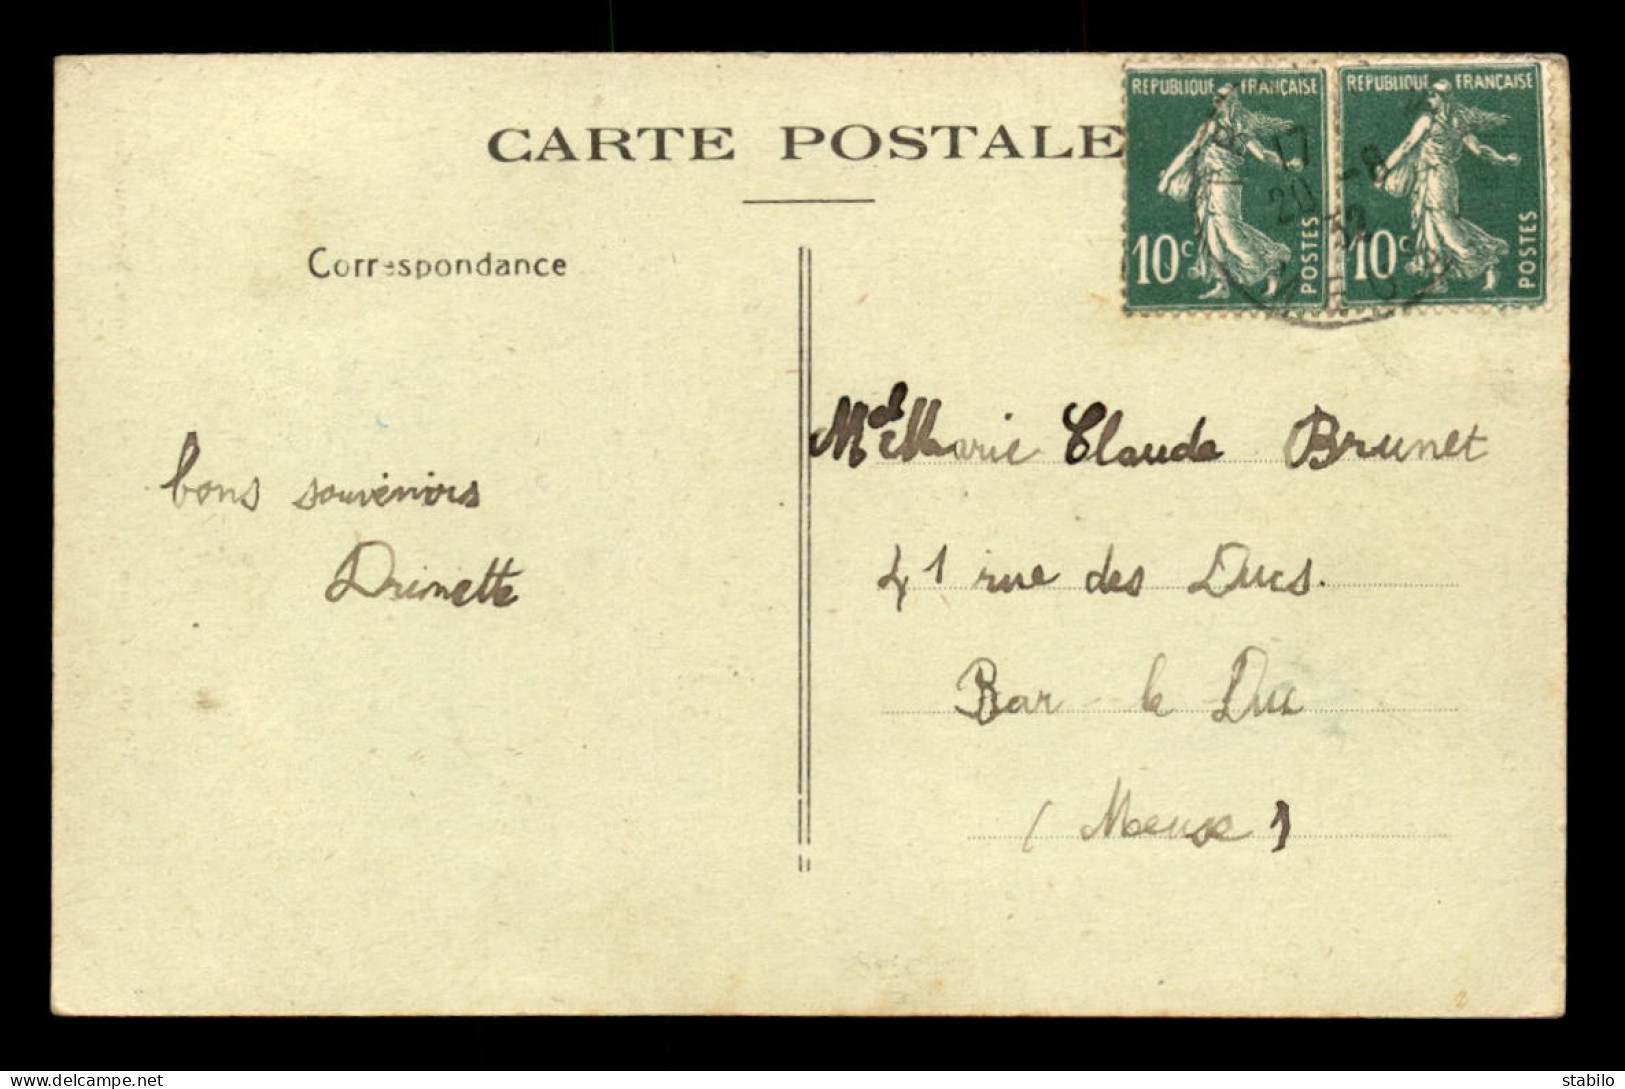 CARTE POSTALE
REPUBLIQUE FRANÇAISE
10c POSTES
REPUBLIQUE FRANÇAISE
10c POSTES
17
20 -8
32
Correspondance
bons souvenirs
Drinette
Mel Marie Claude Brunet
41 rue des Ducs.
Bar-le Duc
(Meuse)
delcampe.net
stabilo